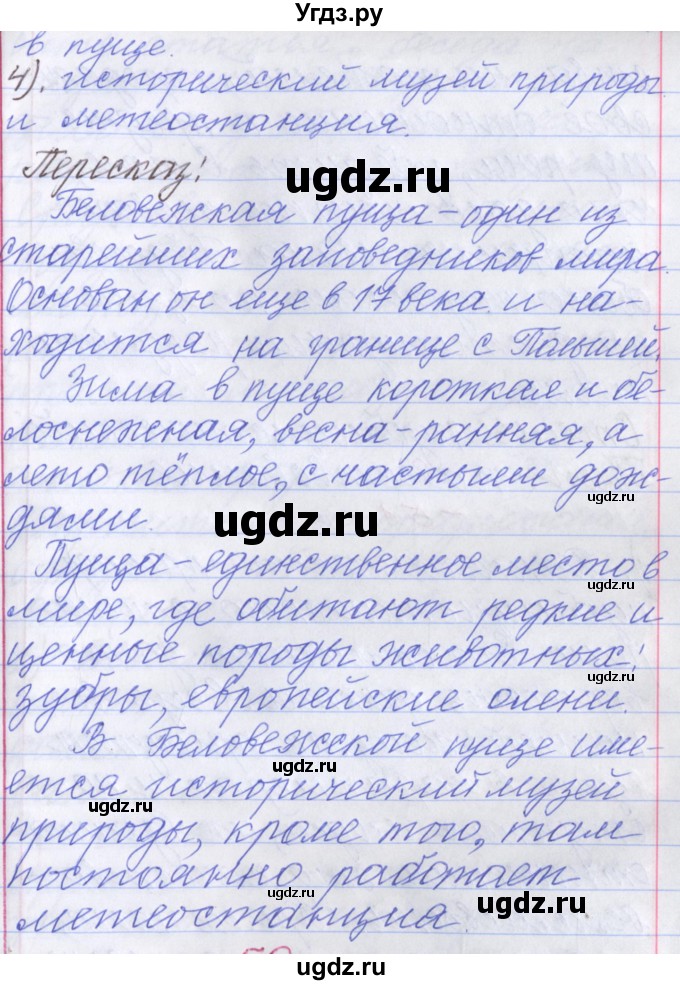 Угдз.ру
в пуще.
4). исторический музей природы
и метеостанция.
Пересказ:
ugdz.ru
Беловежская пуща - один из
старейших заповедников мира.
Основан он еще в 17 века и на-
ходится на границе с Польшей.
Зима в пуще короткая и бе-
лоснежная, весна - ранняя, а
лето тёплое, с частыми дож-
ugdz.ru
дями.
ugdz.ru
Пуща - единственное место в
ugdz.ru
мире, где обитают редкие и
ценные породы животных:
ugdz.ru
зубры, европейские олени.
В Беловежсской пуще име-
ugdz.ru
ется исторический музей
ugdz.ru
природы, кроме того, там
постоянно работает
ugdz.ru
ugdz.ru
метеостанция.
ugdz.ru